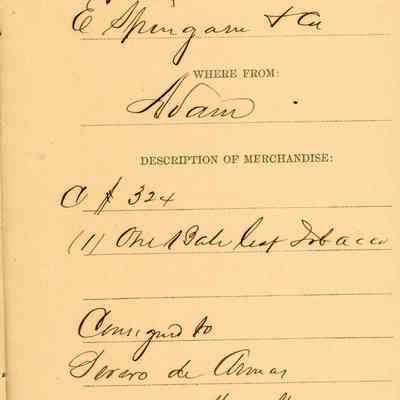 E Spingarn & Co
WHERE FROM:
Adam
DESCRIPTION OF MERCHANDISE:
C # 324
(1) One Bale leaf Tobacco
Consigned to
Severo de Armas